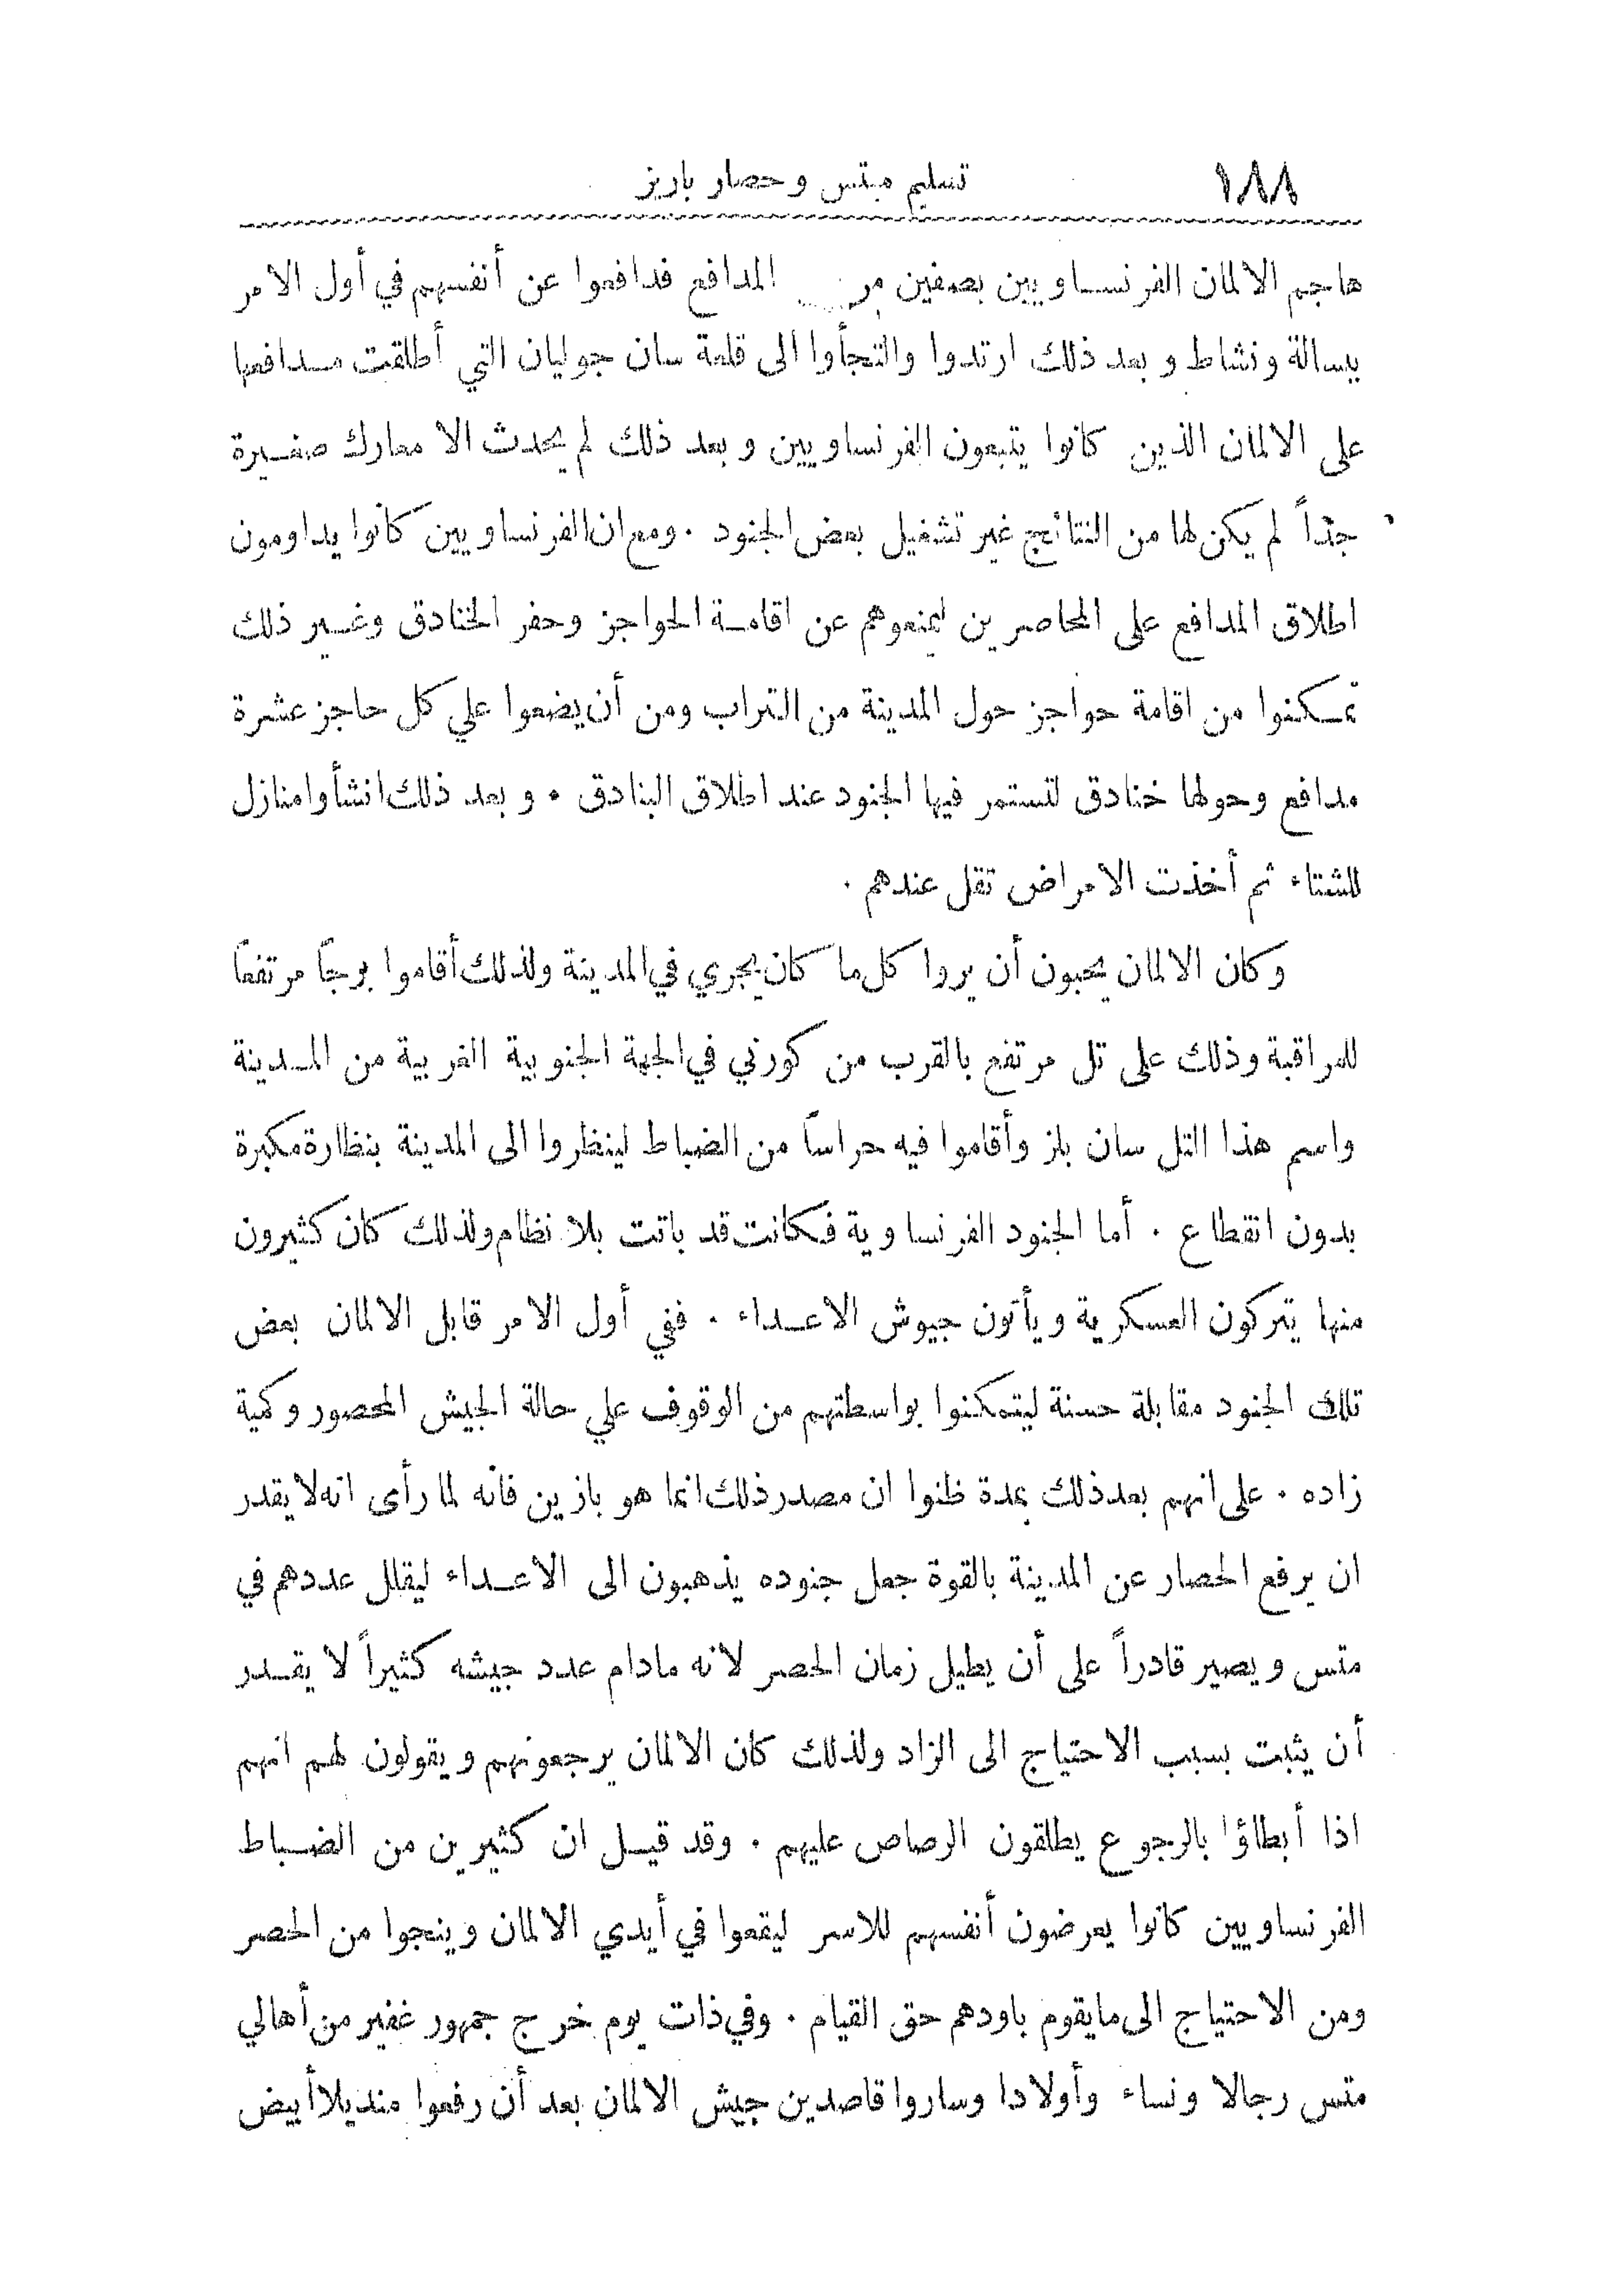 ١٨٨ تسليم ميتس وحصار باريز
هاجم الالمان الفرنساويين بصفين من المدافع فدافعوا عن أنفسهم في أول الامر
ببسالة ونشاط وبعد ذلك ارتدوا والتجأوا الى قلعة سان جوليان التي أطلقت مدافعها
على الالمان الذين كانوا يتبعون الفرنساويين وبعد ذلك لم يحدث الا معارك صغيرة
جدّاً لم يكن لها من النتائج غير تشغيل بعض الجنود . ومع ان الفرنساويين كانوا يداومون
اطلاق المدافع على المحاصرين ليمنعوهم عن اقامة الحواجز وحفر الخنادق وغير ذلك
تمكنوا من اقامة حواجز حول المدينة من التراب ومن أن يضعوا علي كل حاجز عشرة
مدافع وحولها خنادق لتستمر فيها الجنود عند اطلاق البنادق . وبعد ذلك انشأوا منازل
للشتاء ثم أخذت الامراض تقل عندهم .
وكان الالمان يحبون أن يروا كل ما كان يجري في المدينة ولذلك أقاموا برجاً مرتفعاً
للمراقبة وذلك على تل مرتفع بالقرب من كورني في الجهة الجنوبية الغربية من المدينة
واسم هذا التل سان بلز وأقاموا فيه حراساً من الضباط لينظروا الى المدينة بنظارة مكبرة
بدون انقطاع . أما الجنود الفرنساوية فكانت قد باتت بلا نظام ولذلك كان كثيرون
منها يتركون العسكرية ويأتون جيوش الاعداء . ففي أول الامر قابل الالمان بعض
تلك الجنود مقابلة حسنة ليتمكنوا بواسطتهم من الوقوف علي حالة الجيش المحصور وكمية
زاده . على انهم بعد ذلك بمدة ظنوا ان مصدر ذلك انما هو بازين فانه لما رأى انه لا يقدر
ان يرفع الحصار عن المدينة بالقوة جعل جنوده يذهبون الى الاعداء ليقلل عددهم في
متس ويصير قادراً على أن يطيل زمان الحصر لانه مادام عدد جيشه كثيراً لا يقدر
أن يثبت بسبب الاحتياج الى الزاد ولذلك كان الالمان يرجعونهم ويقولون لهم انهم
اذا أبطاؤا بالرجوع يطلقون الرصاص عليهم . وقد قيل ان كثيرين من الضباط
الفرنساويين كانوا يعرضون أنفسهم للاسر ليقعوا في أيدي الالمان وينجوا من الحصر
ومن الاحتياج الى مايقوم باودهم حق القيام . وفي ذات يوم خرج جمهور غفير من أهالي
متس رجالا ونساء وأولادا وساروا قاصدين جيش الالمان بعد أن رفعوا منديلا أبيض